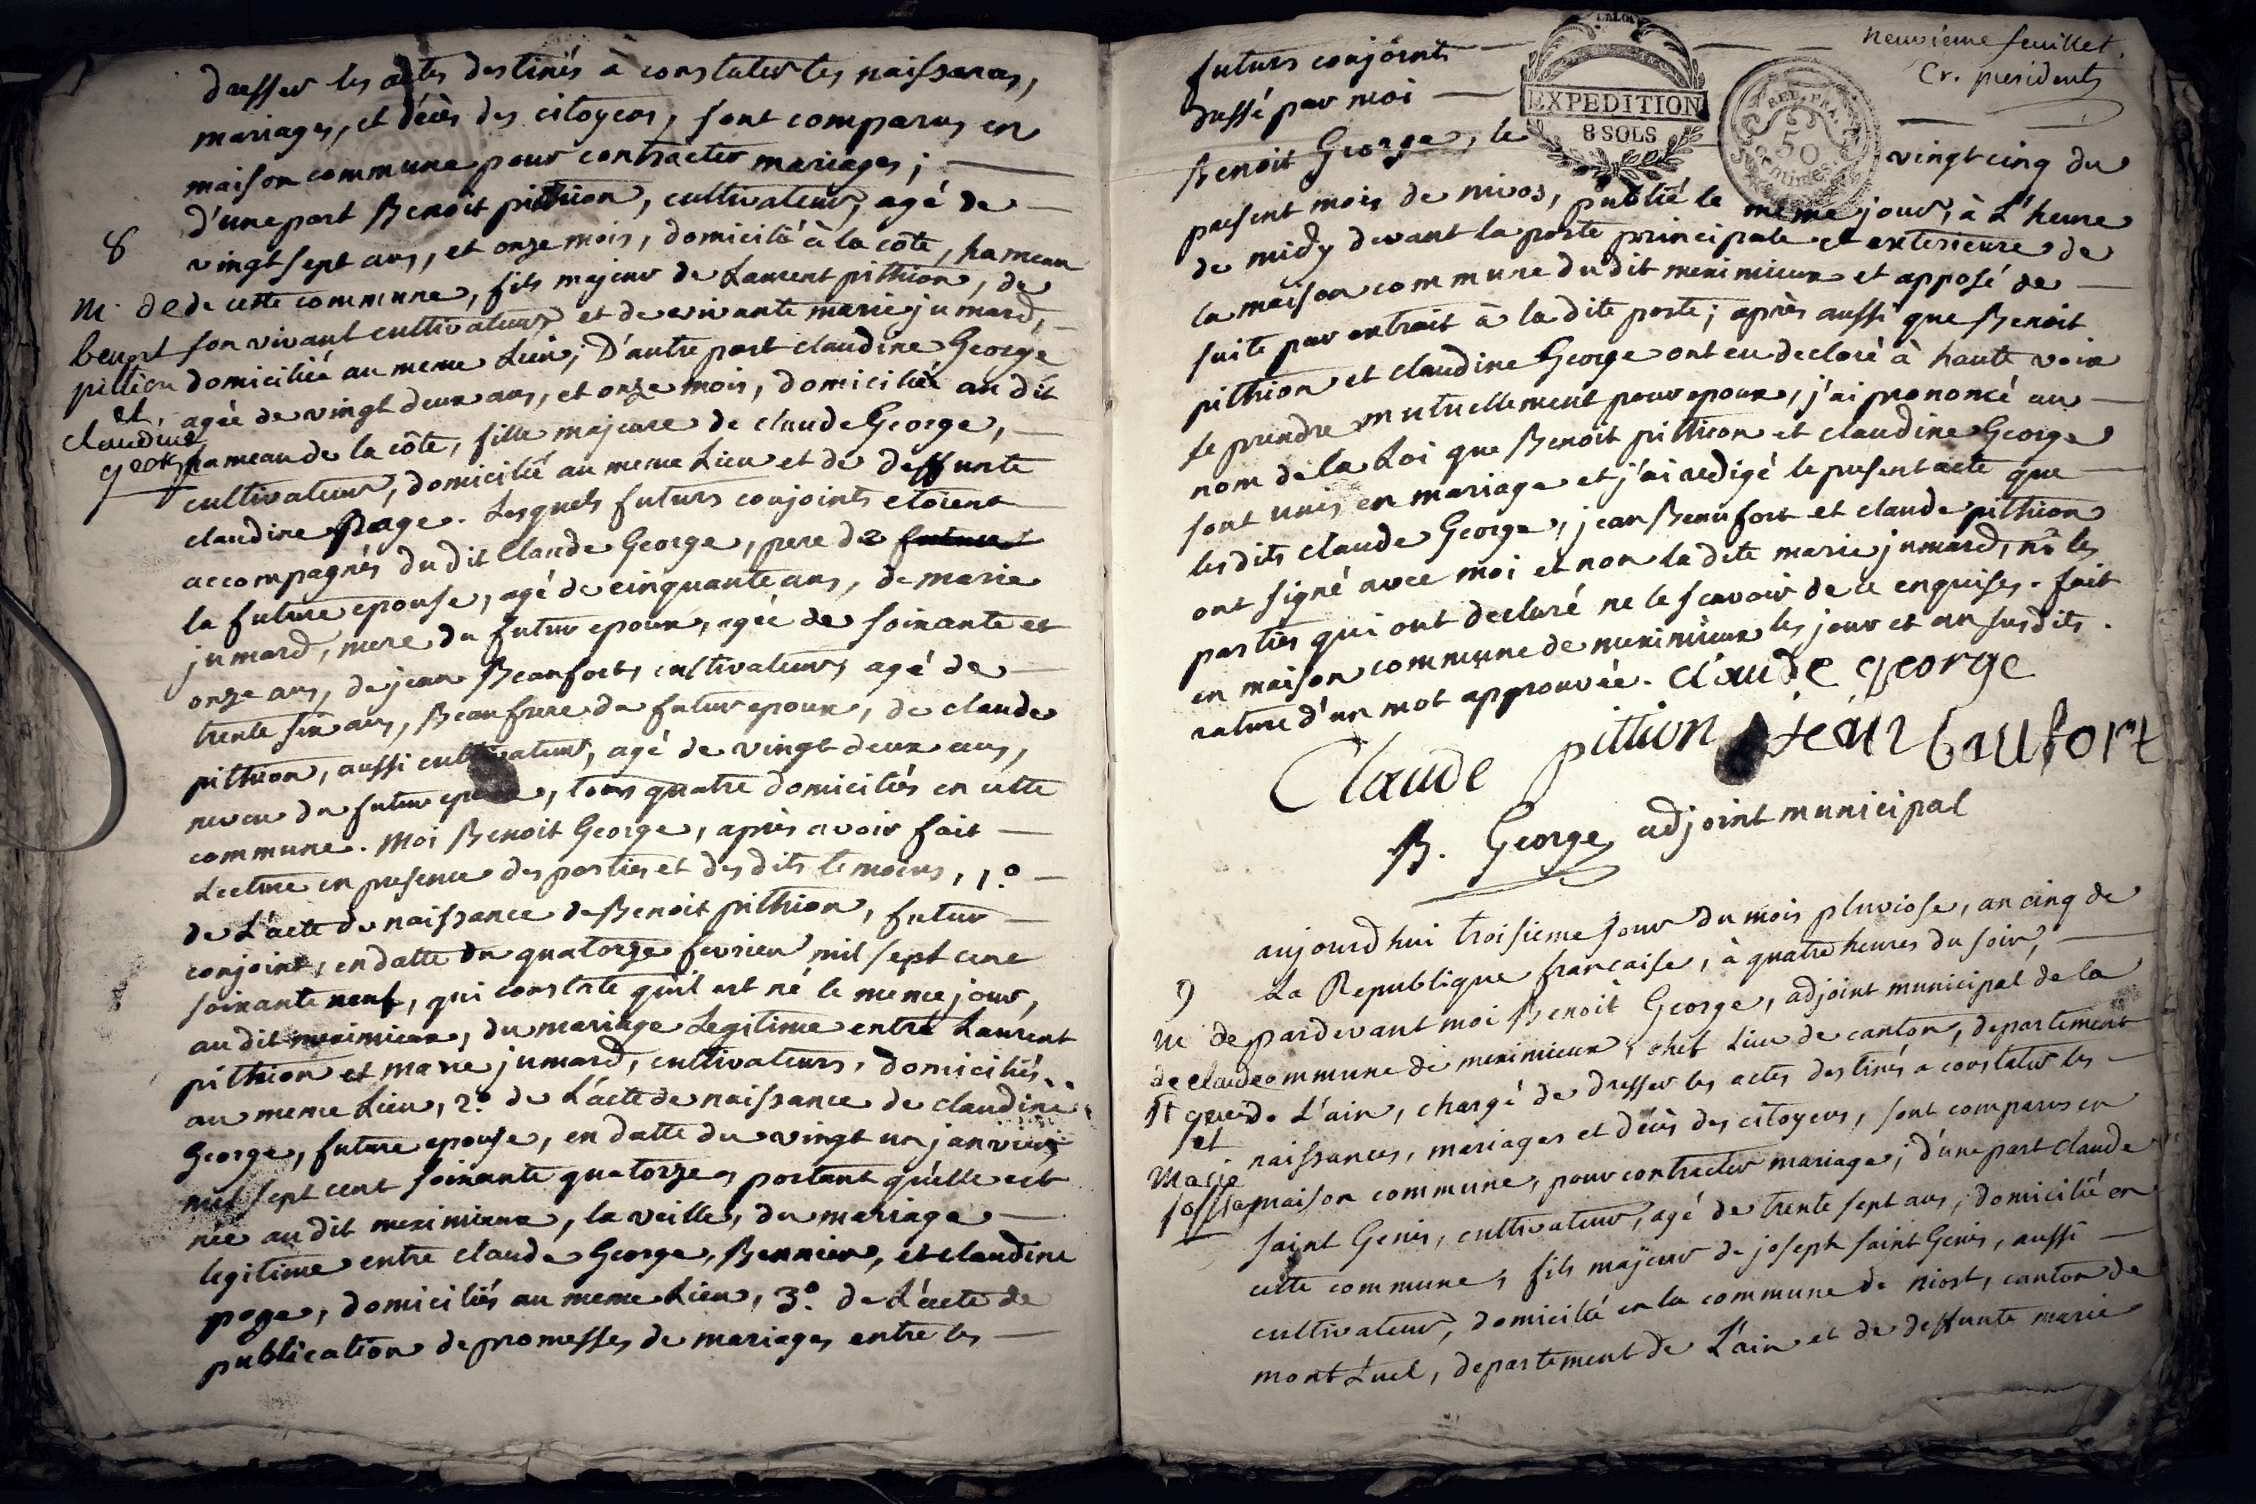 dresser les actes destinés à constater les naissances,
mariages, et décès des citoyens, sont comparus en
maison commune pour contracter mariages;
d'une part Benoit pithion, cultivateur, agé de
8
vingt sept ans, et onze mois, domicilié à la côte, hameau
m. de de cette commune, fils majeur de Laurent pithion, de
benoit son vivant cultivateur et de vivante marie jumard,
pittion domiciliée au meme Lieu; D'autre part claudine George
et agée de vingt deux ans, et onze mois, domiciliée au dit
claudine hameau de la côte, fille majeure de claude George,
george
cultivateur, domicilié au meme Lieu et de deffunte
claudine page. Lesquels futurs conjoints etoient
accompagnés du dit Claude George, pere de
la future epouse, agé de cinquante ans, de marie
jumard, mere du futur epoux, agée de soixante et
onze ans, de jean Beaufort, cultivateur, agé de
trente six ans, Beaufrere du futur epoux, de claude
pithion, aussi cultivateur, agé de vingt deux ans,
neveu du futur epoux, tous quatre domiciliés en cette
commune. Moi Benoit George, après avoir fait
Lecture en presence des parties et des dits temoins, 1°
de L'acte de naissance de Benoit pithion, futur
conjoint, en datte du quatorze fevrier mil sept cent
soixante neuf, qui constate qu'il est né le meme jour,
au dit meximieux, du mariage Legitime entre Laurent
pithion et marie jumard, cultivateurs, domiciliés
au meme Lieu, 2° de L'acte de naissance de claudine
George, future epouse, en datte du vingt un janvier
mil sept cent soixante quatorze, portant qu'elle est
née au dit meximieux, la veille, du mariage
legitime entre claude George, Bennier, et claudine
page, domiciliés au meme Lieu, 3° de L'acte de
publication de promesses de mariages entre les
neuvieme feuillet.
Cr. president
EXPEDITION
8 SOLS
REP. FRA.
50
CENTIMES
futurs conjoints
dressé par moi
Benoit George, le vingt cinq du
present mois de nivos, publié le meme jour, à L'heure
de midy devant la porte principale et exterieure de
la maison commune du dit meximieux et apposé de
suite par extrait à la dite porte; après aussi que Benoit
pithion et claudine George ont eu declaré à haute voix
se prendre mutuellement pour epoux, j'ai prononcé au
nom de la Loi que Benoit pithion et claudine George
sont unis en mariage et j'ai redigé le present acte que
les dits claude George, jean Beaufort et claude pithion
ont signé avec moi et non la dite marie jumard, ni les
parties qui ont declaré ne le scavoir de ce enquises. fait
en maison commune de meximieux les jour et an susdits.
rature d'un mot approuvée. claude george
Claude pittion jean baufort
B. George adjoint municipal
aujourdhui troisieme jour du mois pluviose, an cinq de
La Republique francaise, à quatre heures du soir,
9
m de pardevant moi Benoit George, adjoint municipal de la
de claude commune de meximieux, chef Lieu de canton, departement
st genis de L'ain, chargé de dresser les actes destinés a constater les
et naissances, mariages et décès des citoyens, sont comparus en
marie maison commune, pour contracter mariage, d'une part claude
saint Genis, cultivateur, agé de trente sept ans, domicilié en
cette commune, fils majeur de joseph saint Genis, aussi
cultivateur, domicilié en la commune de niost, canton de
mont Luel, departement de L'ain et de deffunte marie